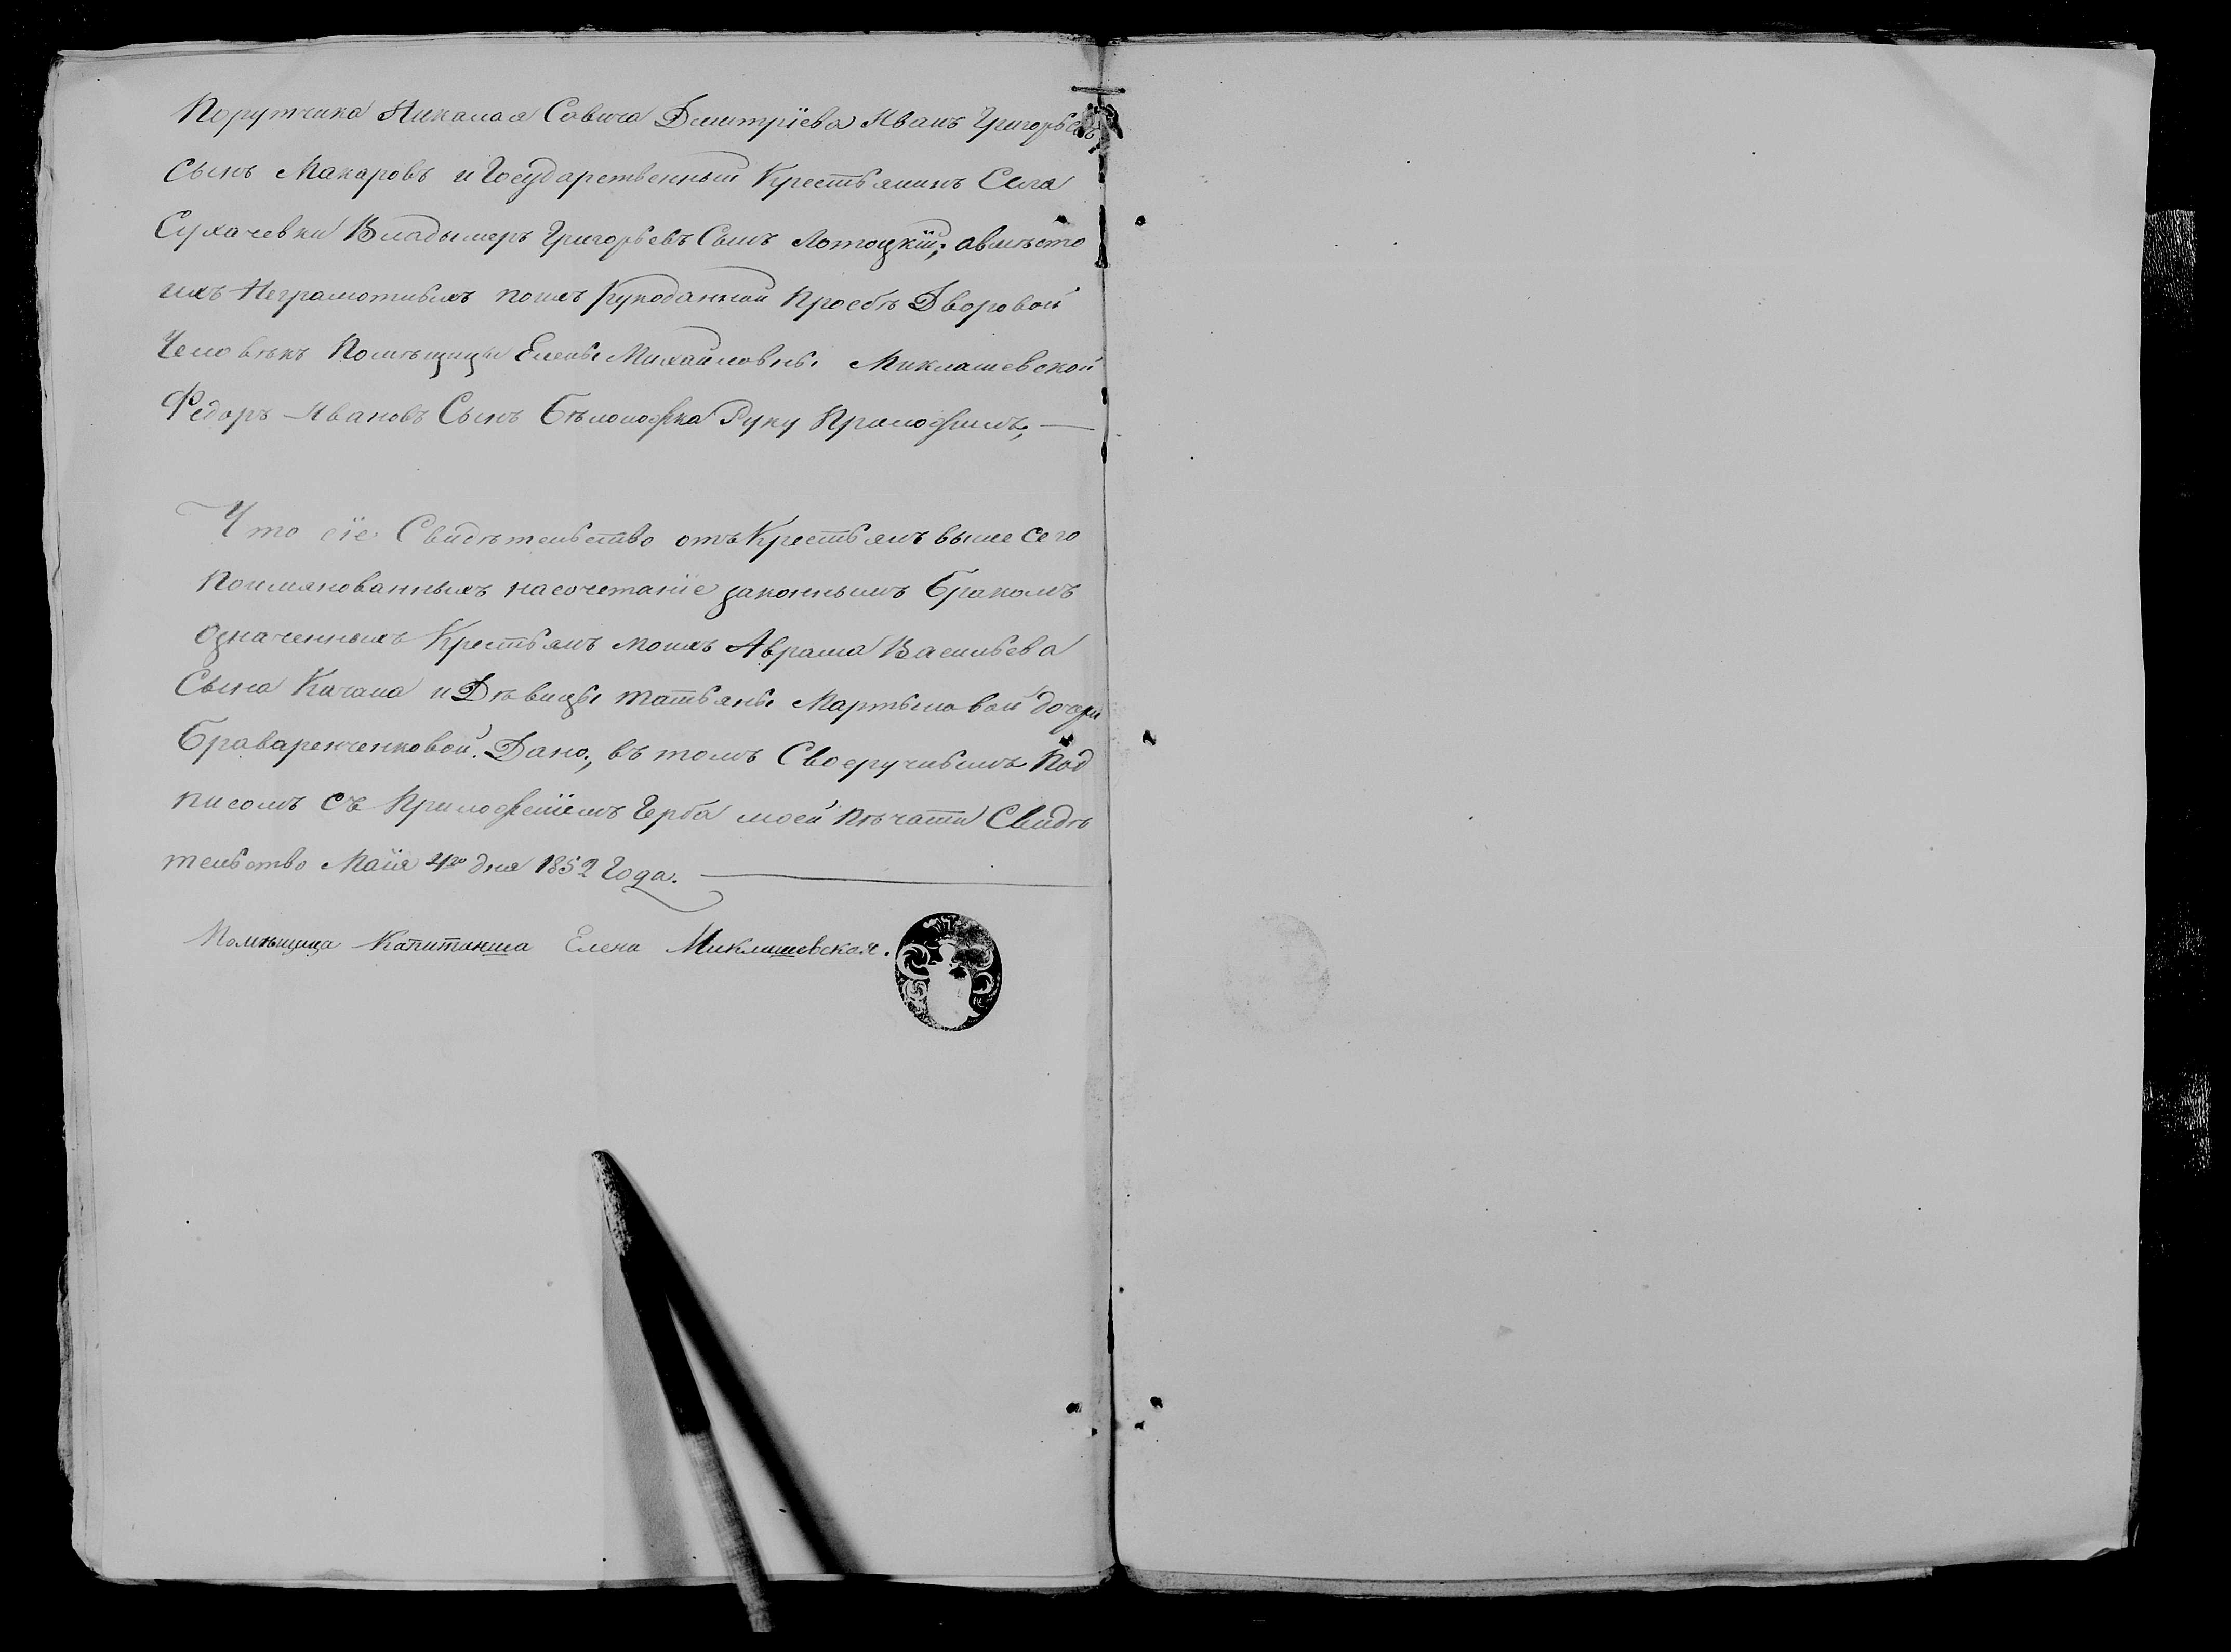 Порутчика Николая Савича Дмитріева Иванъ Григорьевъ
Сынъ Макаровъ и Государственный Крестьянинъ Села
Сухачевки Владымеръ Григорьевъ Сынъ Лотоцкій; авмѣсто
ихъ Неграмотныхъ поихъ рукоданной Прозбѣ Дворовой
Человѣкъ Помѣщицы Елены Михайловны Миклашевской
Федоръ Ивановъ Сынъ Бѣлоножка Руку Приложилъ,
Что сїе Свидѣтельство отъ Крестьянъ выше сего
Поимянованныхъ насочетанїе законнымъ Бракомъ
Означенныхъ Крестьянъ моихъ Аврама Васильева
Сына Качана и Дѣвицы татьяны Мартыновой дочери
Браваренченковой. Дано, въ томъ Своеручнымъ Под
писомъ съ Приложенїемъ Герба моей Пѣчати Свидѣ
тельство Маїя 4го дня 1852 Года.
Помѣщица Капитанша Елена Миклашевская.